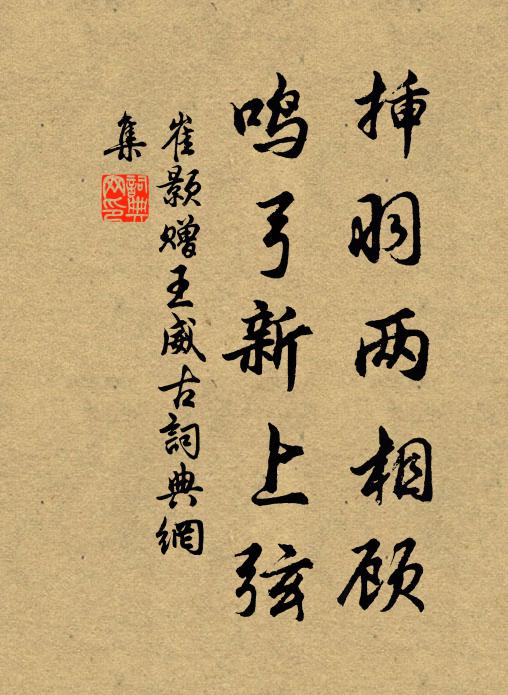 挿羽两相顾
鸣弓新上弦
崔颢赠王威古詞典網
集
詞典网印